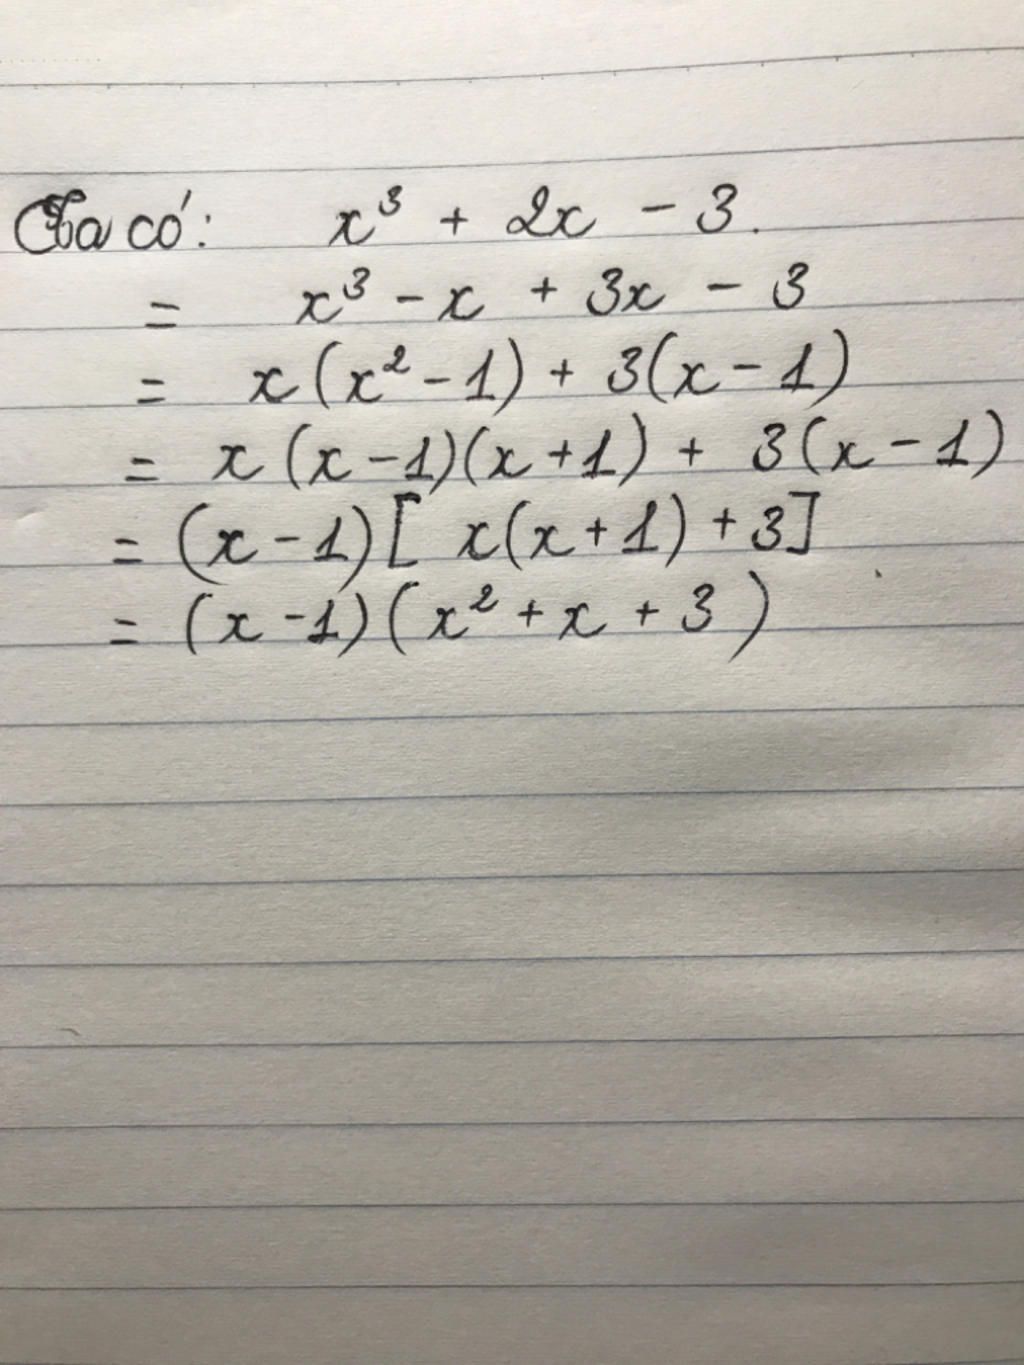 Ta có: x³ + 2x - 3.
= x³ - x + 3x - 3
= x(x² - 1) + 3(x - 1)
= x(x - 1)(x + 1) + 3(x - 1)
= (x - 1)[ x(x + 1) + 3]
= (x - 1)(x² + x + 3)